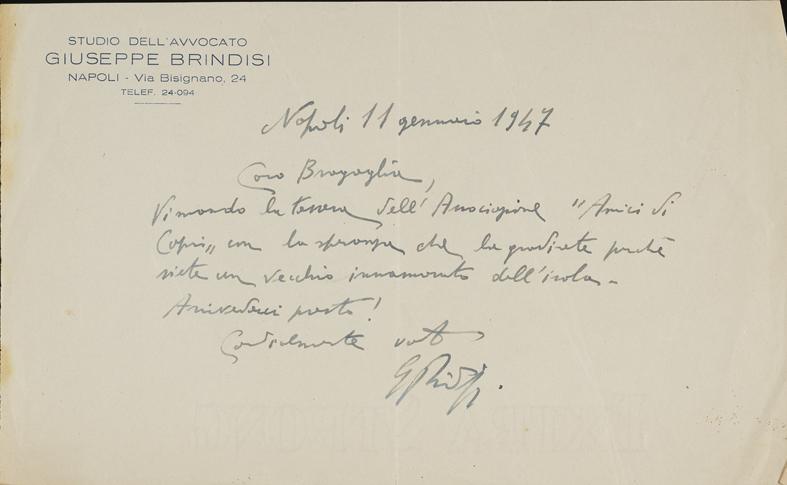 STUDIO DELL'AVVOCATO
GIUSEPPE BRINDISI
NAPOLI - Via Bisignano, 24
TELEF. 24-094
Napoli 11 gennaio 1947
Caro Bragaglia,
Vi mando la tessera dell'Associazione "Amici di
Capri" con la speranza che la gradirete perchè
siete un vecchio innamorato dell'isola -
Arrivederci presto!
Cordialmente vostro
G Brindisi.
EXTRA STRONG